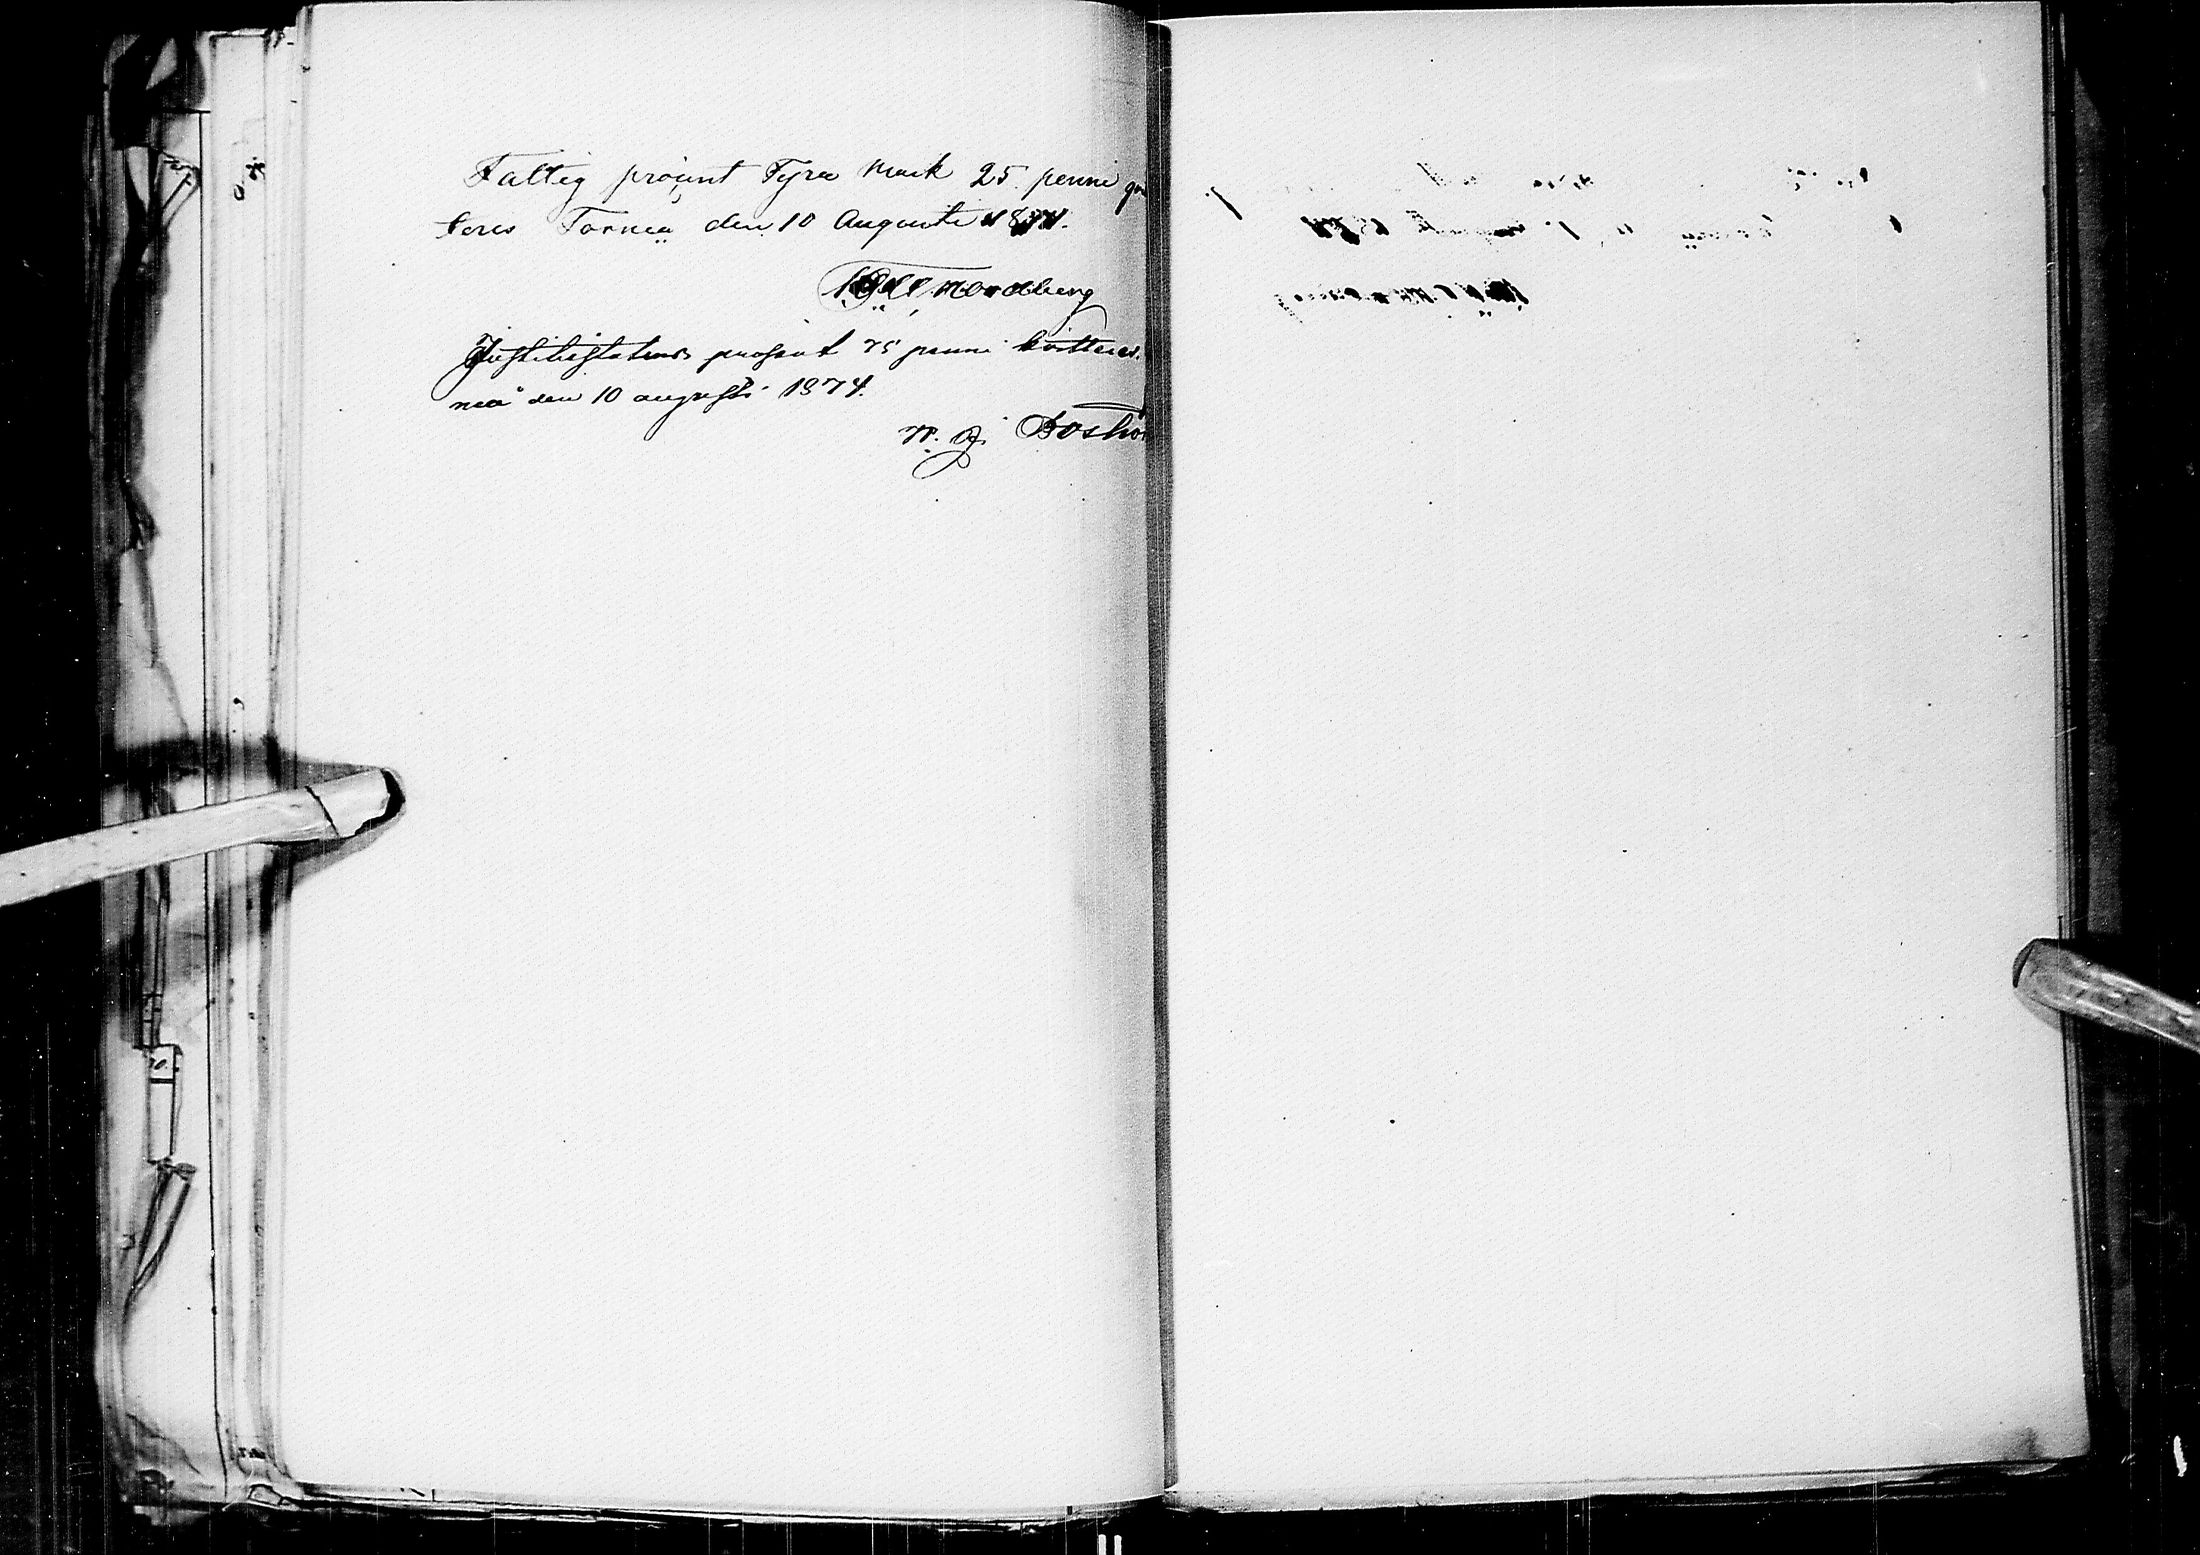 Fattig procent Fyra Mark 25 penni qvi
teres Torneå den 10 Augusti 1874.
Nordberg
Justitiestatens prosent 75 penni kvitteres.
neå den 10 augusti 1874.
Boströ